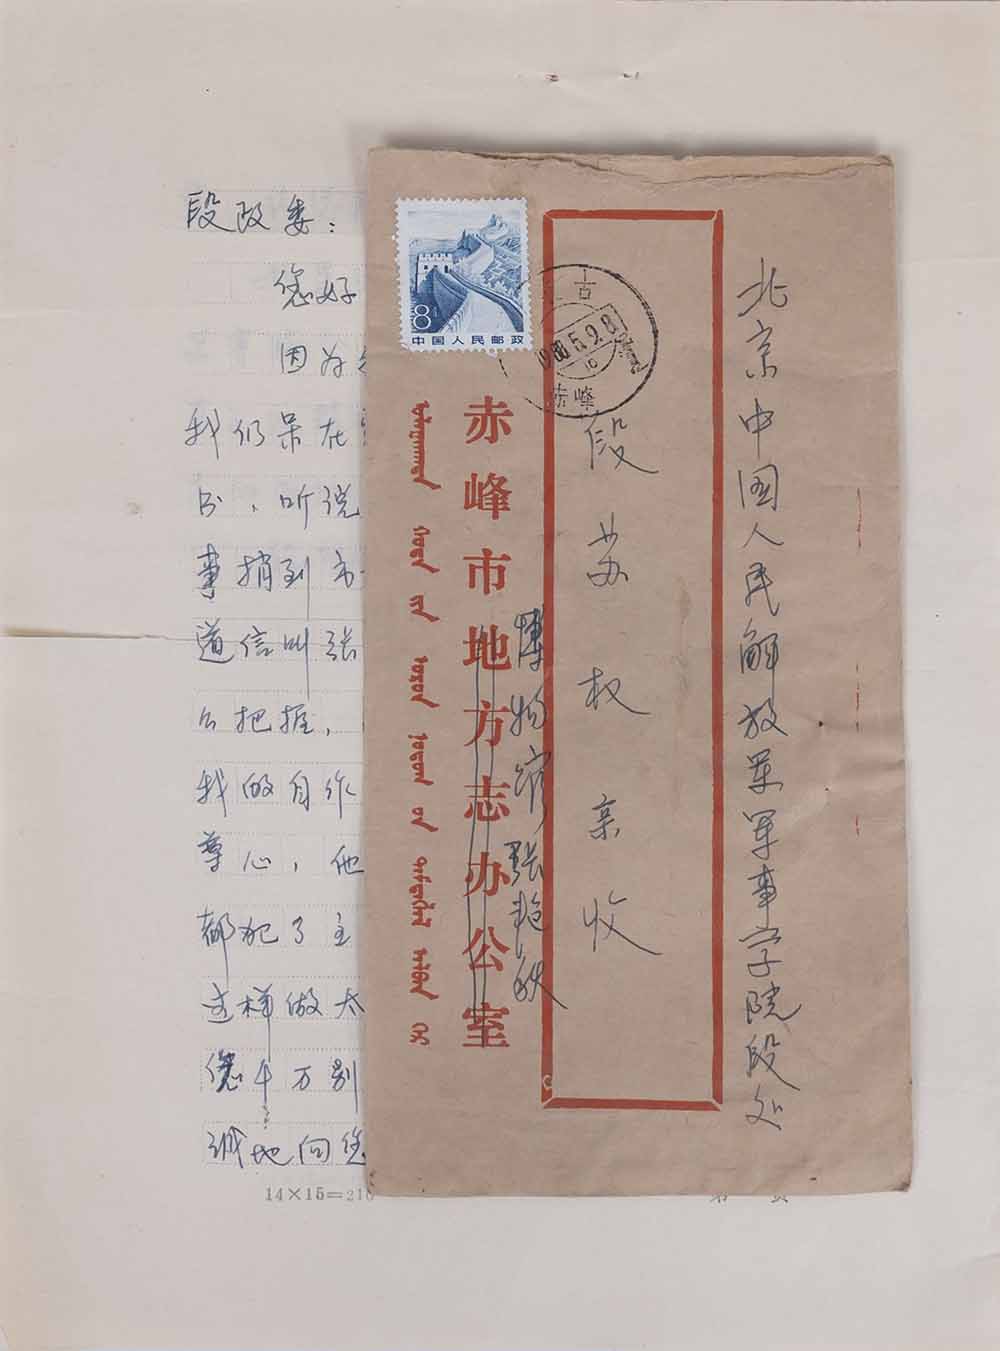 北京中国人民解放军军事学院段处
段苏权亲收
赤峰市地方志办公室
博物馆张艳秋
8
中国人民邮政
古
1988.5.9.8
赤峰
段政委：
您好
因为
我们呆在
书，听说
事捎到市
道信叫张
公把握，
我做自作
尊心，他
都犯了主
这样做太
您千万别
诚地向您
14×15=210